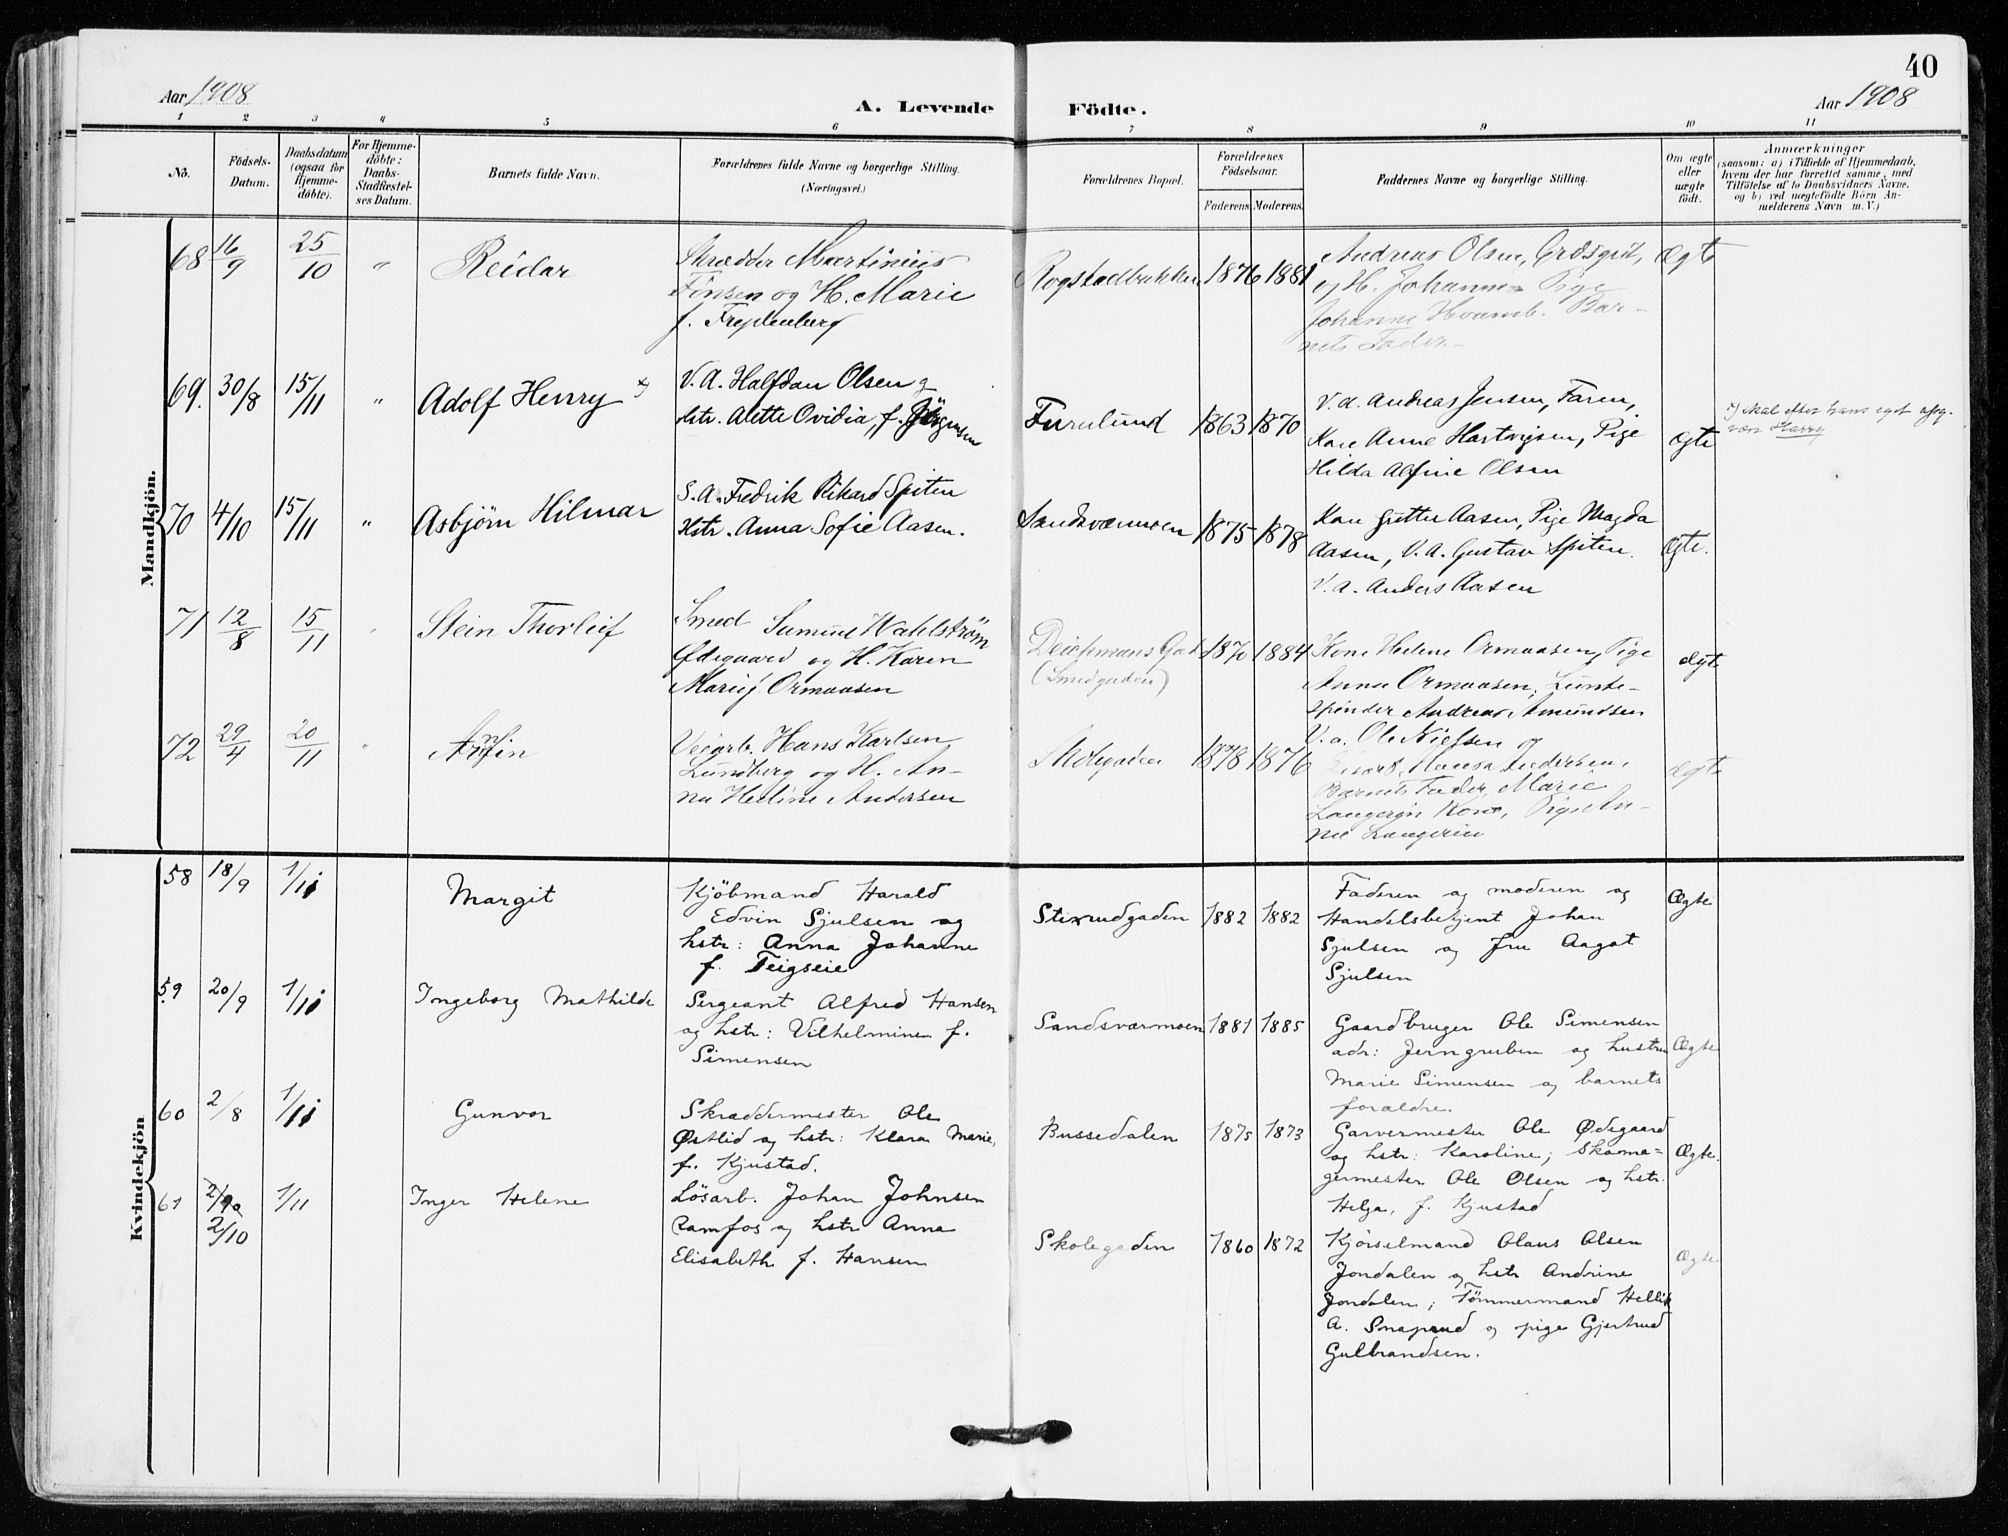 40
Aar 1908
A. Levende Födte.
Aar 1908
1 2 3 4 5 6 7 8 9 10 11
No.
Födsels-
Datum.
Daabsdatum
(ogsaa for
Hjemme-
döbte).
For Hjemme-
döbte:
Daabs-
Stadfæstel-
ses Datum.
Barnets fulde Navn.
Forældrenes fulde Navne og borgerlige Stilling.
(Næringsvei.)
Forældrenes Bopæl.
Forældrenes
Födselsaar.
Faderens Moderens.
Faddernes Navne og borgerlige Stilling.
Om ægte
eller
uægte
födt.
Anmærkninger
(saasom: a) i Tilfælde af Hjemmedaab,
hvem der har forrettet samme, med
Tilföielse af to Daabsvidners Navne.
og b) ved uægtefödte Börn An-
melderens Navn m. V.)
Mandkjön.
68 16/9 25/10 " Reidar
Skrædder Martinius
Finsen og H. Marie
f. Freydenberg
Rogstadbakken 1876 1881
Andreas Olsen,
og H. Johanne Pige
Johanne Hvamb. Bar-
nets Fader
Ægte
69. 30/8 15/11 " Adolf Henry x)
V.A. Halfdan Olsen g
Hstr. Alette Ovidia, f. Jörgensen
Furulund 1863 1870
V.A. Andreas Jensen, Faren,
Kone Anne Hartvigsen, Pige
Hilda Alfine Olsen
Ægte
x) skal efter hans eget opg.
være Harry
70 4/10 15/11 " Asbjörn Hilmar
S.A. Fredrik Rikard Spiten
Hstr. Anna Sofie Aasen.
Sandsværmoen 1875 1878
Kone Grethe Aasen, Pige Magda
Aasen, V.A. Gustav Spiten.
V.A. Anders Aasen
Ægte.
71 12/8 15/11 " Stein Thorleif
Smed Samuel Wahlström
Ödegaard og H. Karen
Marie f. Ormaasen
Deichmans Gad
(Smedgaden)
1870 1884
Kone Helene Ormaasen, Pige
Anna Ormaasen, Lunte-
spinder Andreas Amundsen
ægte
72 29/4 20/11 " Arnfin
Veiarb. Hans Karlsen
Lundberg og H. An-
na Heline Andersen
1878 1876
V.a. Ole Nielsen og
Barnets Fader, Marie
Langerin Kone, Pige An-
na Langerin
ægte
Kvindekjön
58 18/9 1/11 Margit
Kjöbmand Harald
Edvin Sjulsen og
hstr: Anna Johanne
f. Teigseie
Stixrudgaden 1882 1882
Faderen og moderen og
Handelsbetjent Johan
Sjulsen og fru Aagot
Sjulsen
Ægte
59 20/9 1/11 Ingeborg Mathilde
Sergeant Alfred Hansen
og hstr: Vilhelmine f.
Simensen
Sandsværmoen 1881 1885
Gaardbruger Ole Simensen
adr: Jerngruben og hustru
Marie Simensen og barnets
forældre.
Ægte
60 2/8 1/11 Gunvor
Skræddermester Ole
Østlid og hstr: Klara Marie,
f. Kjustad.
Bussedalen 1875 1873
Garvermester Ole Ødegaard
og hstr: Karoline; Skoma-
germester Ole Olsen og hstr.
Helga, f. Kjustad
Ægte.
61 2/10 1/11 Inger Helene
Lösarb. Johan Johnsen
Ramfos og hstr Anna
Elisabeth f. Hansen
Skolegaden 1860 1872
Kjörselmand Olaus Olsen
Jondalen og hstr Andrine
Jondalen; Tömmermand Hellik
A. og pige Gjertrud
Gulbrandsen.
Ægte